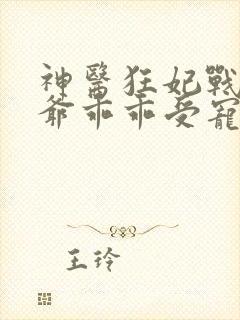 神醫狂妃戰
爺乖乖受寵
王玲